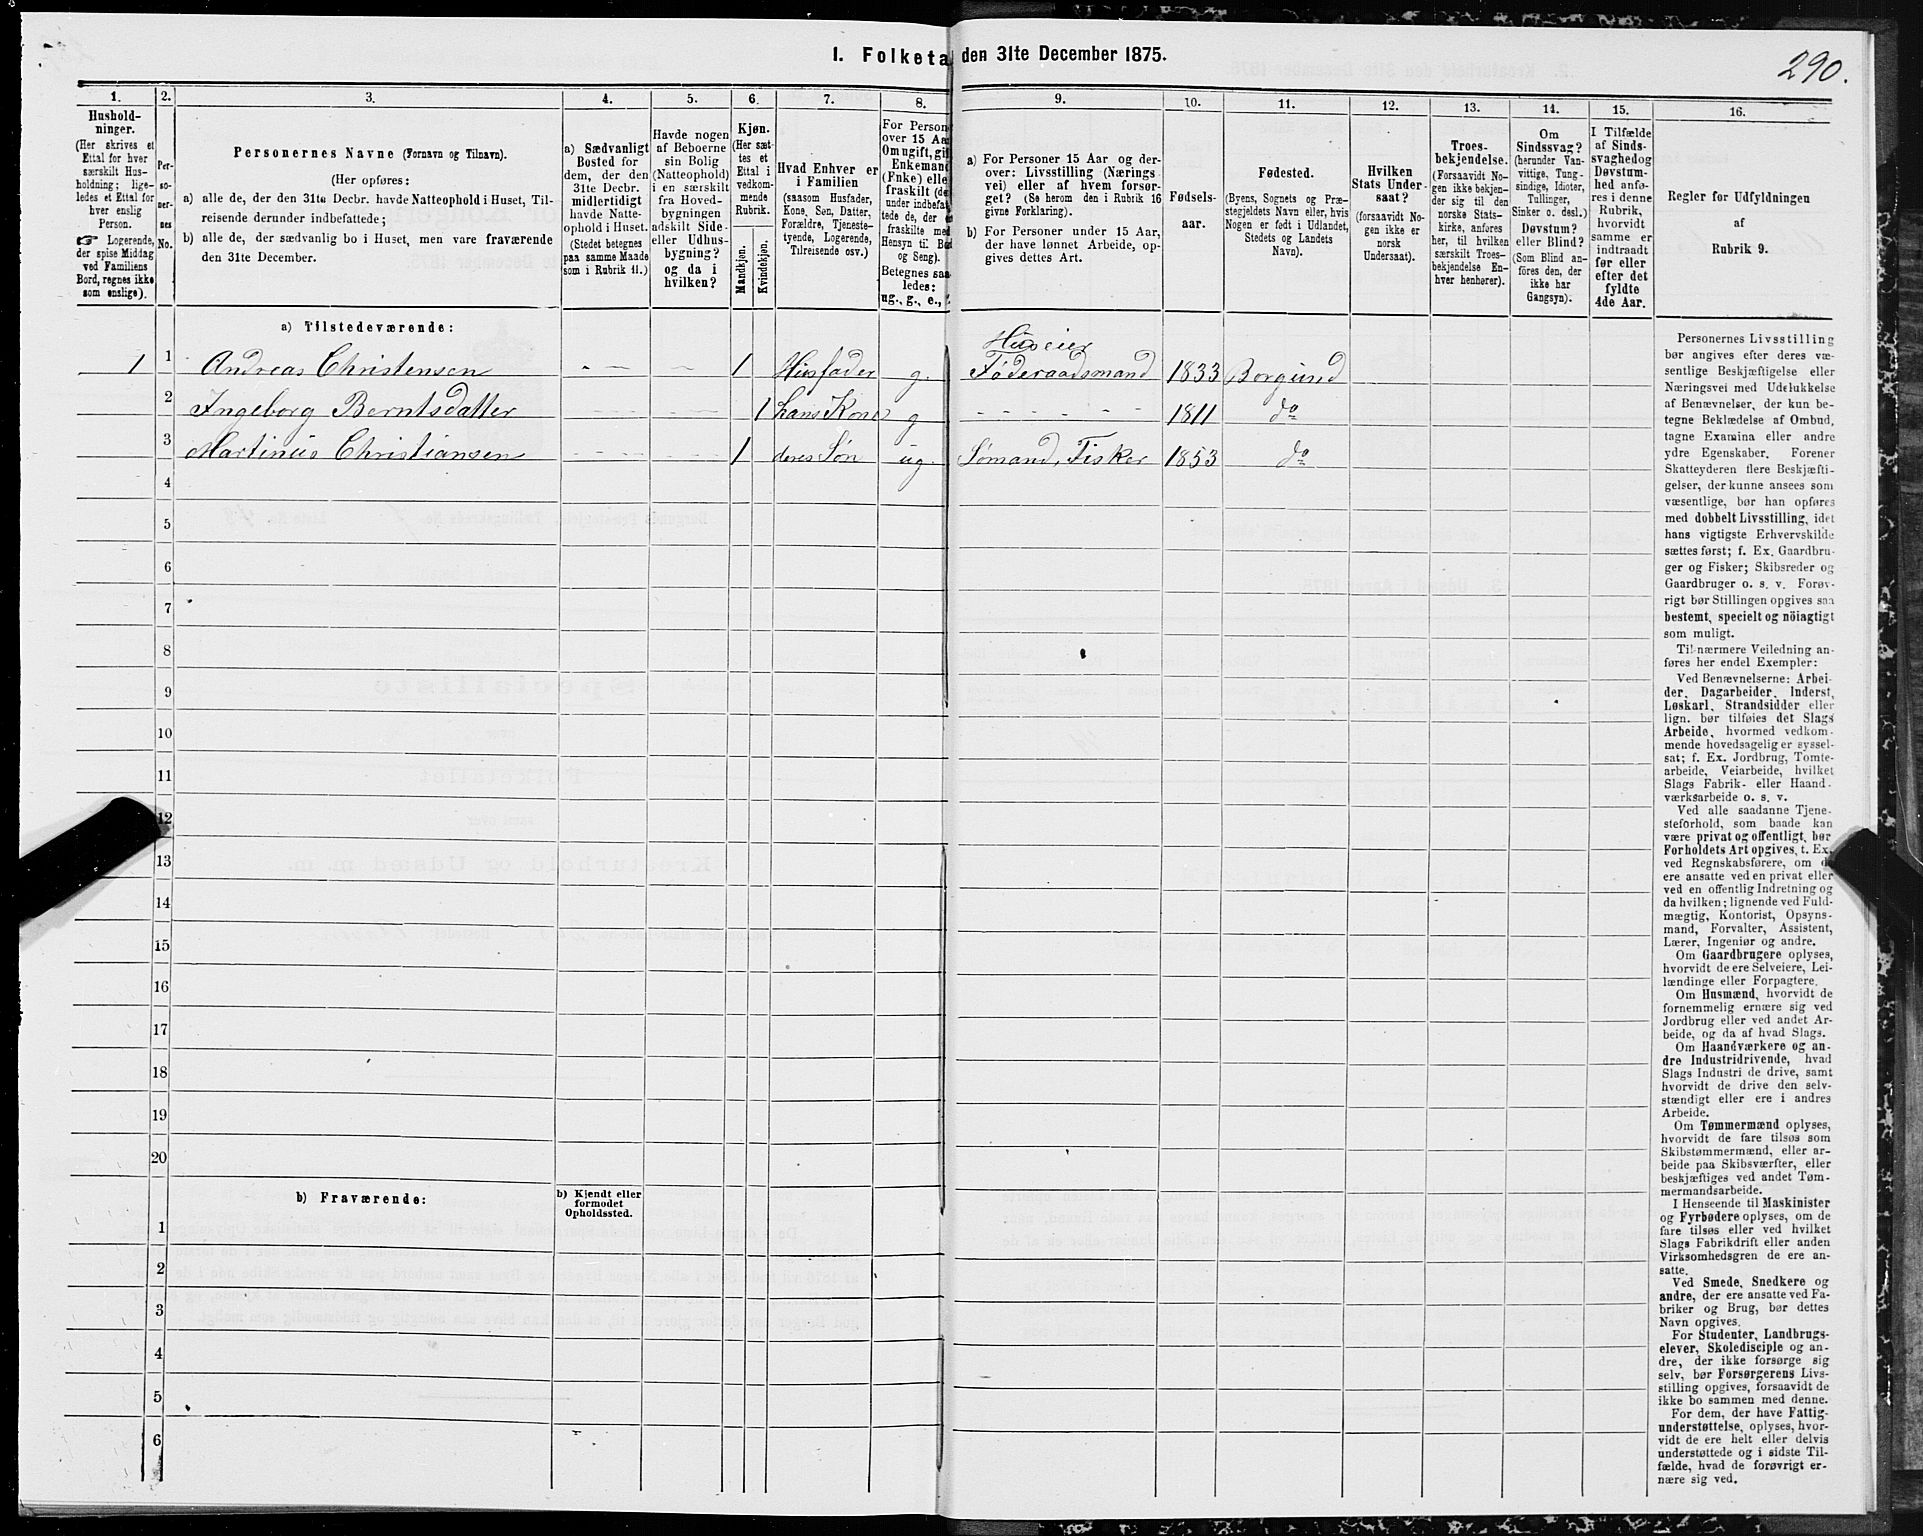 I. Folketa den 31te December 1875.
290.
1.
Hushold-
ninger.
(Her skrives et
Ettal for hver
særskilt Hus-
holdning; lige-
ledes et Ettal for
hver enslig
Person.
☞ Logerende,
der spise Middag
ved Familiens
Bord, regnes ikke
som enslige).
2.
Per-
so-
ner-
nes
No.
3.
Personernes Navne (Fornavn og Tilnavn).
(Her opføres:
a) alle de, der den 31te Decbr. havde Natteophold i Huset, Til-
reisende derunder indbefattede;
b) alle de, der sædvanlig bo i Huset, men vare fraværende
den 31te December.
4.
a) Sædvanligt
Bosted for
dem, der den
31te Decbr.
midlertidigt
havde Natte-
ophold i Huset.
(Stedet betegnes
paa samme Maade
som i Rubrik 11.)
5.
Havde nogen
af Beboerne
sin Bolig
(Natteophold)
i en særskilt
fra Hoved-
bygningen
adskilt Side-
eller Udhus-
bygning?
og da i
hvilken?
6.
Kjøn.
(Her sæt-
tes et
Ettal i
vedkom-
mende
Rubrik.
Mandkjøn.
Kvindekjøn.
7.
Hvad Enhver er
i Familien
(saasom Husfader,
Kone, Søn, Datter,
Forældre, Tjeneste-
tyende, Logerende,
Tilreisende osv.)
8.
For Person
over 15 Aa
Om ugift, gif
Enkemand
(Enke) elle
fraskilt (de
under indbefat
tede de, der
fraskilte med
Hensyn til Bo
og Seng).
Betegnes saa
ledes:
ug., g., e.,
9.
a) For Personer 15 Aar og der-
over: Livsstilling (Nærings
vei) eller af hvem forsør-
get? (Se herom den i Rubrik 16
givne Forklaring).
b) For Personer under 15 Aar,
der have lønnet Arbeide, op-
gives dettes Art.
10.
Fødsels-
aar.
11.
Fødested.
(Byens, Sognets og Præ-
stegjeldets Navn eller, hvis
Nogen er født i Udlandet,
Stedets og Landets
Navn).
12.
Hvilken
Stats Under-
saat?
(forsaavidt No-
gen ikke er
norsk
Undersaat).
13.
Troes-
bekjendelse.
(Forsaavidt No-
gen ikke bekjen-
der sig til den
norske Stats-
kirke, anføres
her, til hvilken
særskilt Troes-
bekjendelse En-
hver henhører).
14.
Om
Sindssvag?
(herunder Van-
vittige, Tung-
sindige, Idioter,
Tullinger,
Sinker o. desl.)
Døvstum?
eller Blind?
(Som Blind an-
føres den, der
ikke har
Gangsyn).
15.
I Tilfælde
af Sinds-
svaghed og
Døvstum-
hed anfø-
res i denne
Rubrik,
hvorvidt
samme er
indtraadt
før eller
efter det
fyldte
4de Aar.
16.
Regler for Udfyldningen
af
Rubrik 9.
a) Tilstedeværende:
Huseier
1 1 Andreas Christensen - - - 1 Husfader g. Føderaadsmand 1833 Borgund
2 Ingeborg Berntsdatter - - - - - 1 hans Kone g - - - - - - 1811 do
3 Martinus Christiansen - - - - - 1 deres Søn ug. Sømand, Fisker 1853 do
4
5
6
7
8
9
10
11
12
13
14
15
16
17
18
19
20
b) Fraværende:
b) Kjendt eller
formodet
Opholdssted.
1
2
3
4
5
6
Personernes Livsstilling
bør angives efter deres væ-
sentlige Beskjæftigelse eller
Næringsvei med Udelukkelse
af Benævnelser, der kun be-
tegne Beklædelse af Ombud,
tagne Examina eller andre
ydre Egenskaber. Forener
Skatteyderen flere Beskjæfti-
gelser, der kunne ansees som
væsentlige, bør han opføres
med dobbelt Livsstilling, idet
hans vigtigste Erhvervskilde
sættes først; f. Ex. Gaardbru-
ger og Fisker; Skibsreder og
Gaardbruger o. s. v. Forøv-
rigt bør Stillingen opgives saa
bestemt, specielt og nöiagtigt
som muligt.
Til nærmere Veiledning an-
føres her endel Exempler:
Ved Benævnelserne: Arbei-
der, Dagarbeider, Inderst,
Løskarl, Strandsidder eller
lign. bør tilføies det Slags
Arbeide, hvormed vedkom-
mende hovedsagelig er syssel-
sat; f. Ex. Jordbrug, Tomte-
arbeide, Veiarbeide, hvilket
Slags Fabrik- eller Haand-
værksarbeide o. s. v.
Ved alle saadanne Tjene-
steforhold, som baade kan
være privat og offentligt, bør
Forholdets Art opgives, t. Ex.
ved Regnskabsførere, om de
ere ansatte ved en privat eller
ved en offentlig Indretning og
da hvilken; lignende ved Fuld-
mægtig, Kontorist, Opsyns-
mand, Forvalter, Assistent,
Lærer, Ingeniør og andre.
Om Gaardbrugere oplyses,
hvorvidt de ere Selveiere, Lei-
lændinge eller Forpagtere.
Om Husmænd, hvorvidt de
fornemmelig ernære sig ved
Jordbrug eller ved andet Ar-
beide, og da af hvad Slags.
Om Haandværkere og an-
dre Industridrivende, hvad
Slags Industri de drive, samt
hvorvidt de drive den selv-
stændigt eller ere i andres
Arbeide.
Om Tømmermænd oplyses,
hvorvidt de fare tilsøs som
Skibstømmermænd, eller ar-
beide paa Skibsværfter, eller
beskjæftiges ved andet Tøm-
mermandsarbeide.
I Henseende til Maskinister
og Fyrbødere oplyses, om de
fare tilsøs eller ved hvilket
Slags Fabrikdrift eller anden
Virksomhedsgren de ere an-
satte.
Ved Smede, Snedkere og
andre, der ere ansatte ved Fa-
briker og Brug, bør dettes
Navn opgives.
For Studenter, Landbrugs-
elever, Skoledisciple og an-
dre, der ikke forsørge sig
selv, bør Forsørgerens Livs-
stilling opgives, forsaavidt de
ikke bo sammen med denne.
For dem, der have Fattig-
understøttelse, oplyses, hvor-
vidt de ere helt eller delvis
understøttede og i sidste Til-
fælde, hvad de forøvrigt er-
nære sig ved.